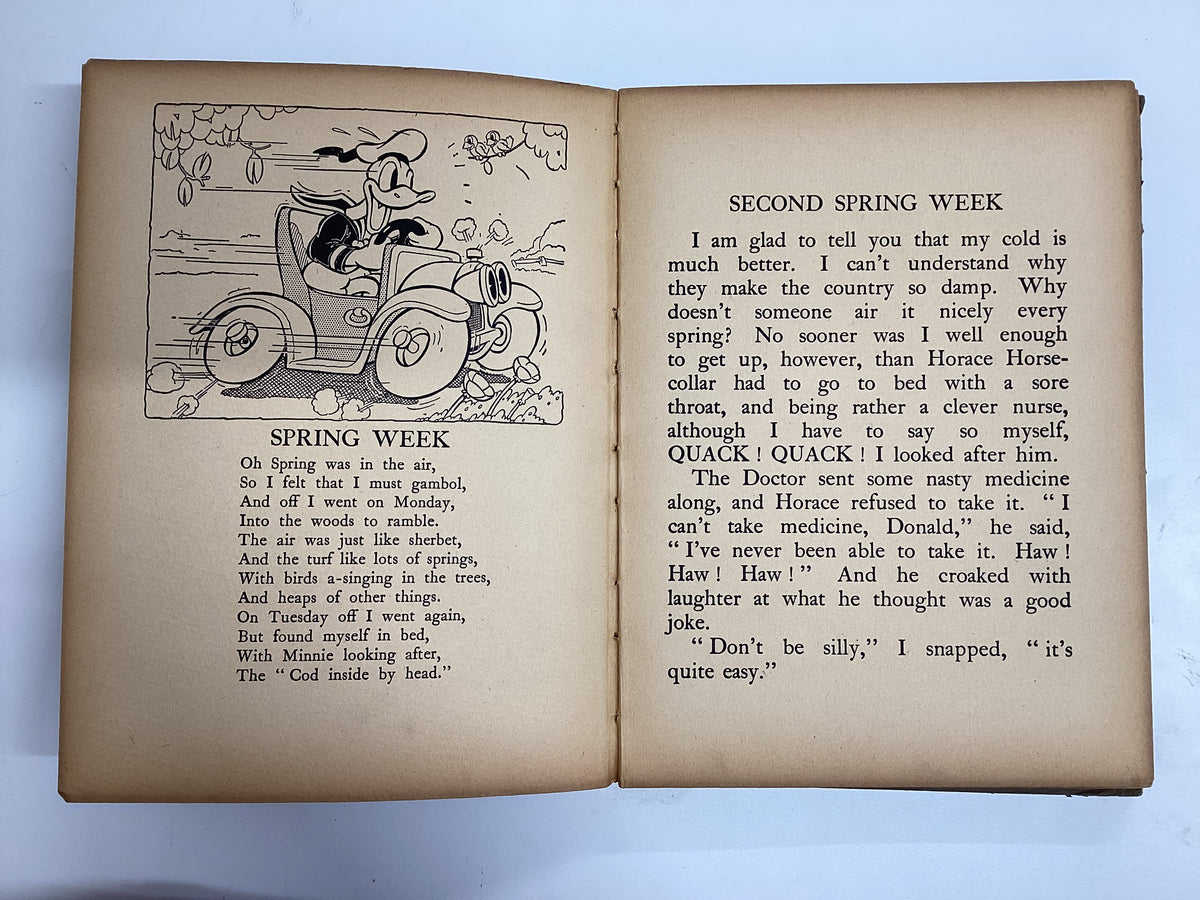 SPRING WEEK
Oh Spring was in the air,
So I felt that I must gambol,
And off I went on Monday,
Into the woods to ramble.
The air was just like sherbet,
And the turf like lots of springs,
With birds a-singing in the trees,
And heaps of other things.
On Tuesday off I went again,
But found myself in bed,
With Minnie looking after,
The “ Cod inside by head.”
SECOND SPRING WEEK
I am glad to tell you that my cold is
much better. I can't understand why
they make the country so damp. Why
doesn't someone air it nicely every
spring? No sooner was I well enough
to get up, however, than Horace Horse-
collar had to go to bed with a sore
throat, and being rather a clever nurse,
although I have to say so myself,
QUACK ! QUACK ! I looked after him.
The Doctor sent some nasty medicine
along, and Horace refused to take it. “ I
can't take medicine, Donald,” he said,
“ I've never been able to take it. Haw !
Haw ! Haw ! ” And he croaked with
laughter at what he thought was a good
joke.
“ Don't be silly,” I snapped, “ it's
quite easy.”